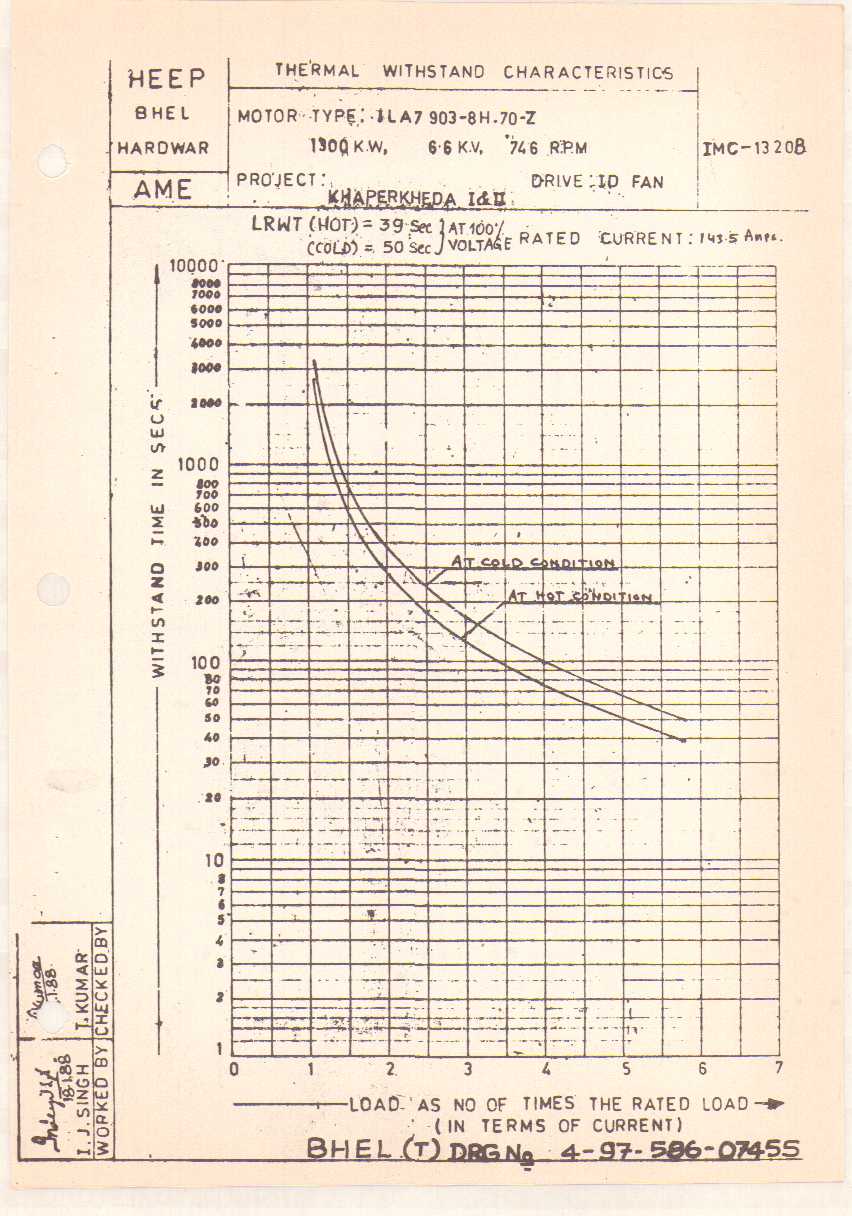 HEEP
BHEL
HARDWAR
AME
THERMAL WITHSTAND CHARACTERISTICS
MOTOR TYPE: 1LA7 903-8H.70-Z
1300 K.W, 6.6 K.V, 746 R.P.M
IMC-1320B
PROJECT: DRIVE: ID FAN
KHAPERKHEDA I&II
LRWT (HOT) = 39 Sec } AT 100%
(COLD) = 50 Sec } VOLTAGE
RATED CURRENT: 143.5 Amps.
WITHSTAND TIME IN SECS
10000
8000
7000
6000
5000
4000
3000
2000
1000
800
700
600
500
400
300
200
100
80
70
60
50
40
30
20
10
8
7
6
5
4
3
2
1
AT COLD CONDITION
AT HOT CONDITION
0 1 2 3 4 5 6 7
LOAD AS NO OF TIMES THE RATED LOAD
(IN TERMS OF CURRENT)
BHEL (T) DRG No 4-97-586-07455
WORKED BY CHECKED BY
I.J. SINGH T. KUMAR
18.1.88
Kumar
1.88